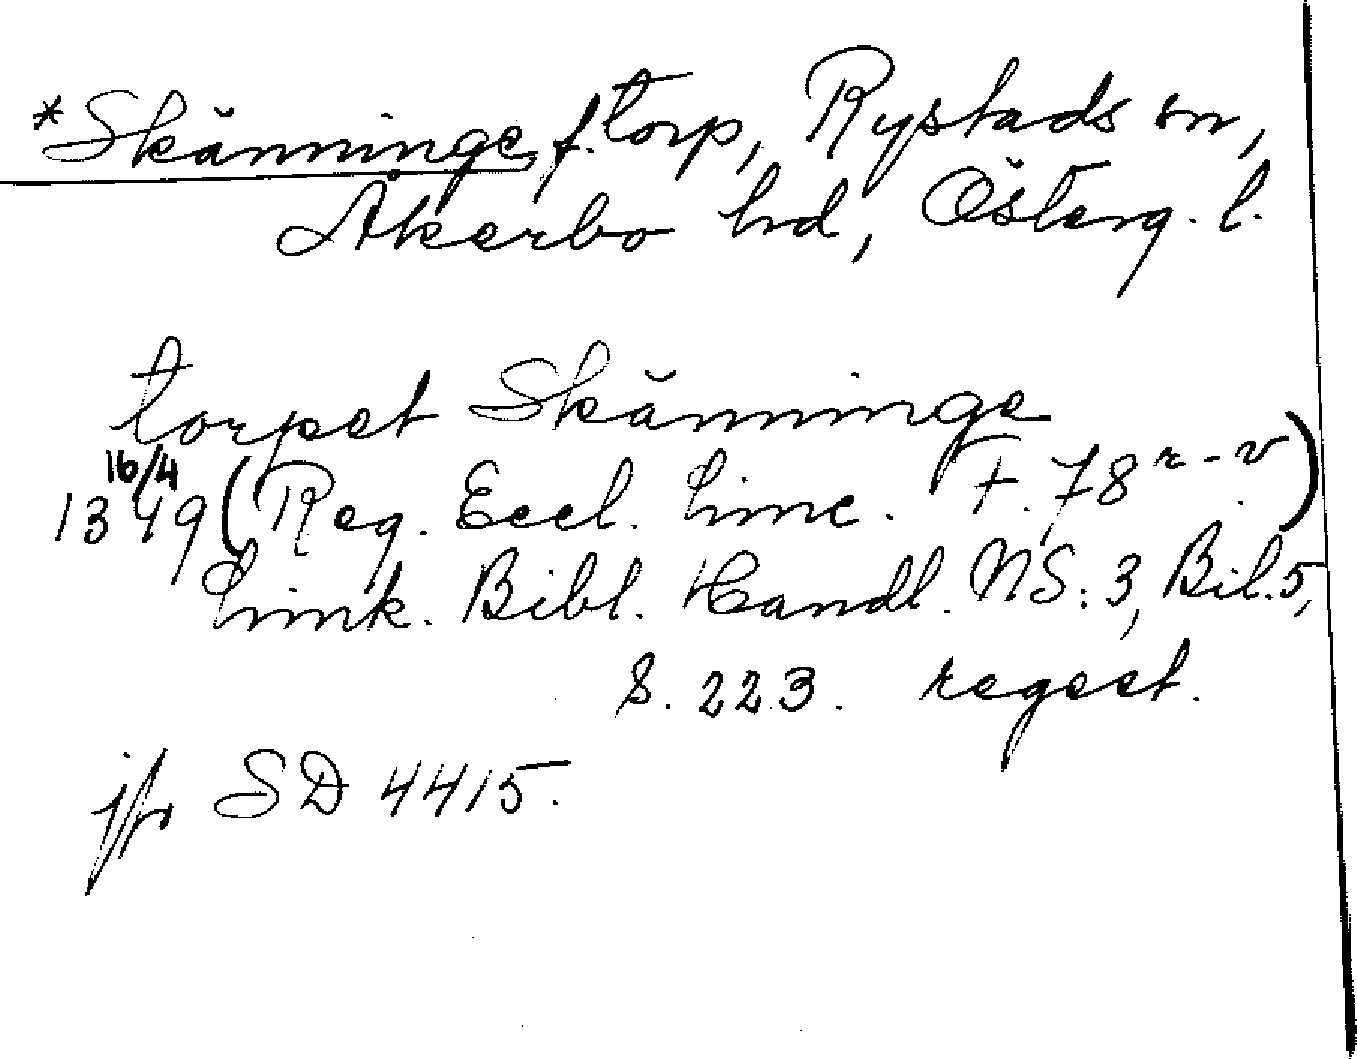 *Skänninge, f. torp, Rystads sn,
Åkerbo hd, Österg. l.
torpet Skänninge
16/4
1349 (Reg. Eccl. Linc. F. 78 r-v)
Link. Bibl. Handl. NS: 3, Bil. 5,
s. 223. regest.
jfr SD 4415.